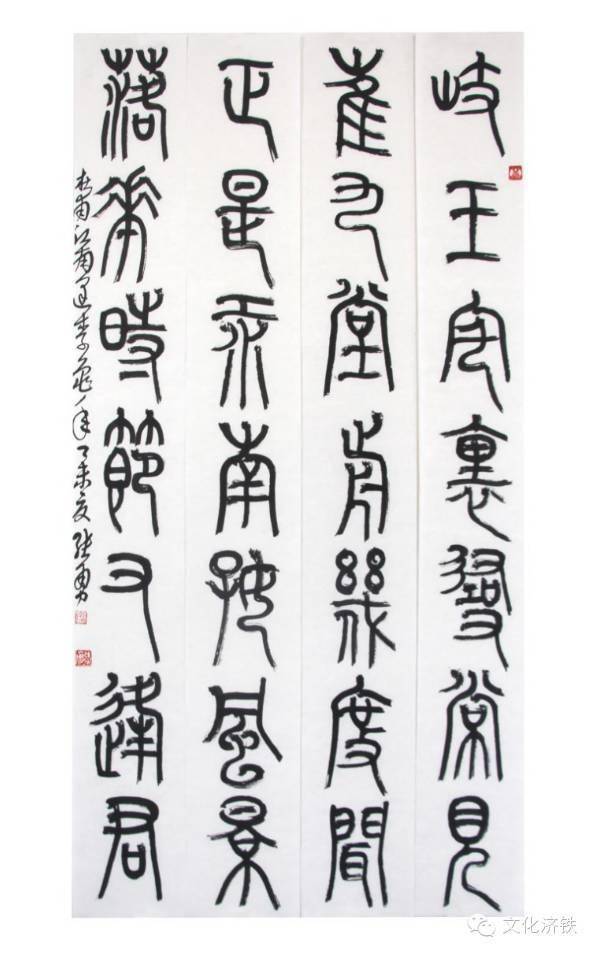 岐王宅裏尋常見
崔九堂前幾度聞
正是江南好風景
落花時節又逢君
杜甫江南逢李龜年 乙未夏 張勇
文化济铁